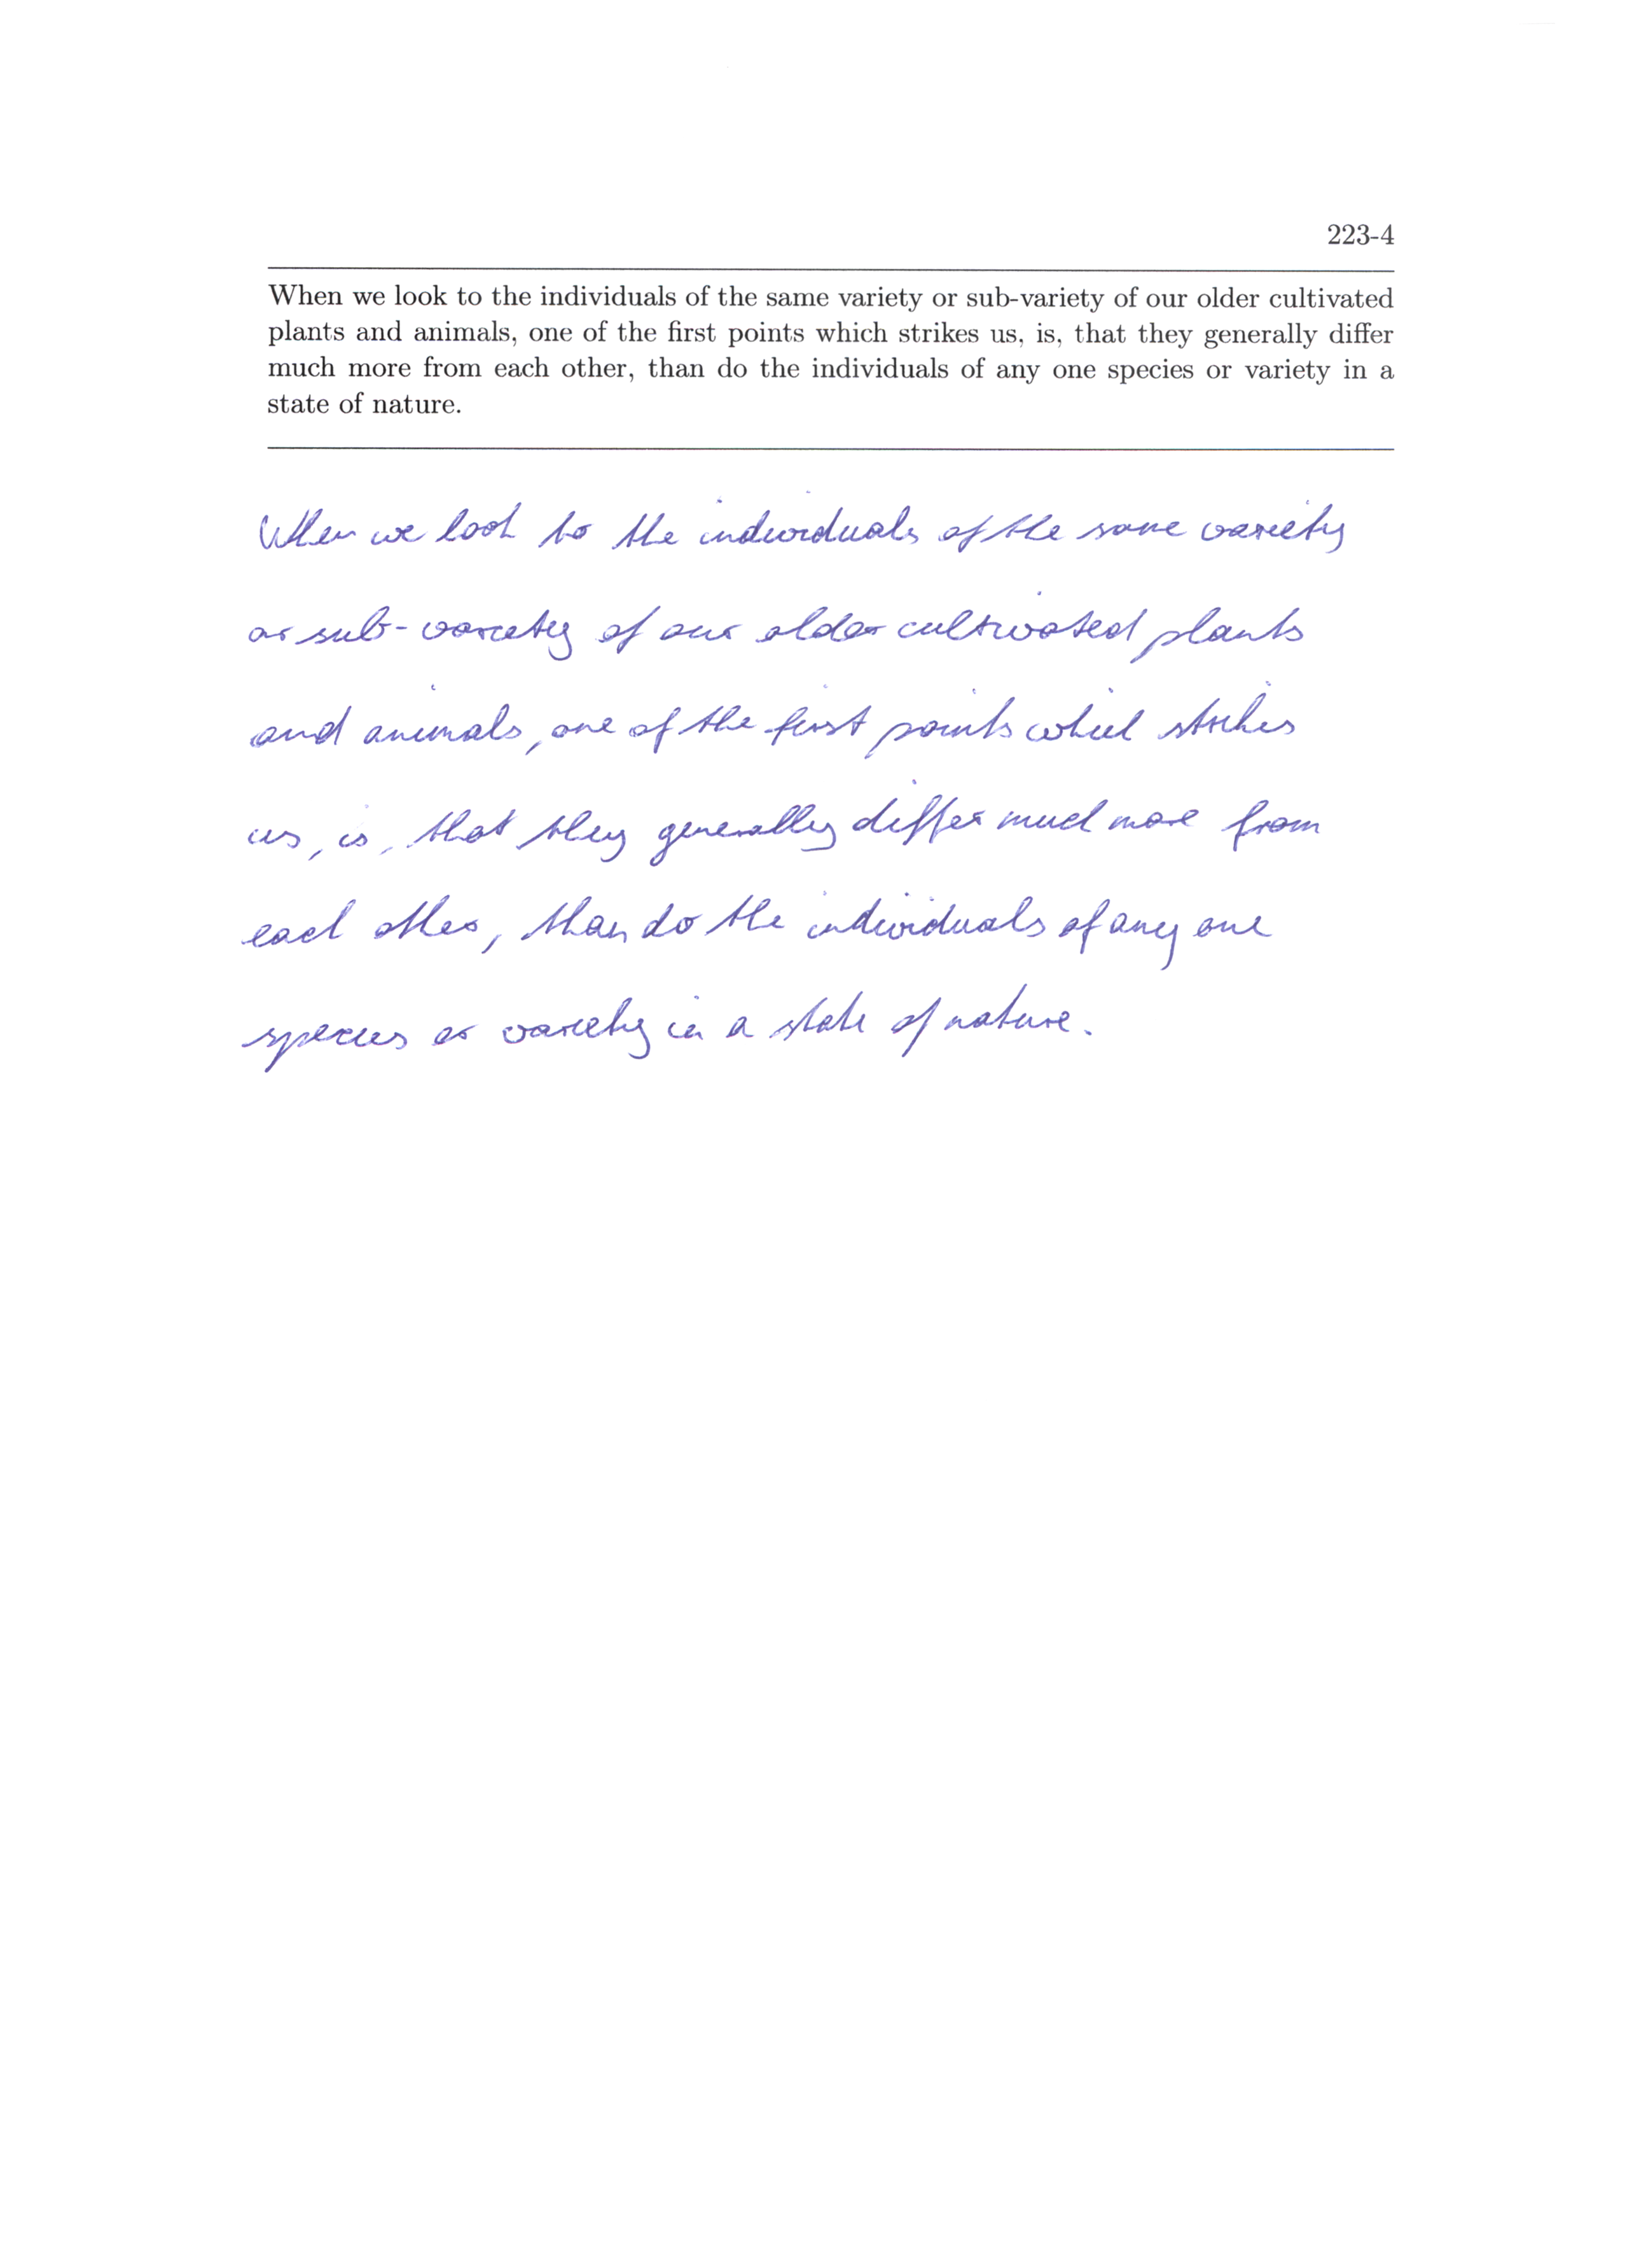 223-4
When we look to the individuals of the same variety or sub-variety of our older cultivated
plants and animals, one of the first points which strikes us, is, that they generally differ
much more from each other, than do the individuals of any one species or variety in a
state of nature.
When we look to the individuals of the same variety
or sub-variety of our older cultivated plants
and animals, one of the first points which strikes
us, is, that they generally differ much more from
each other, than do the individuals of any one
species or variety in a state of nature.